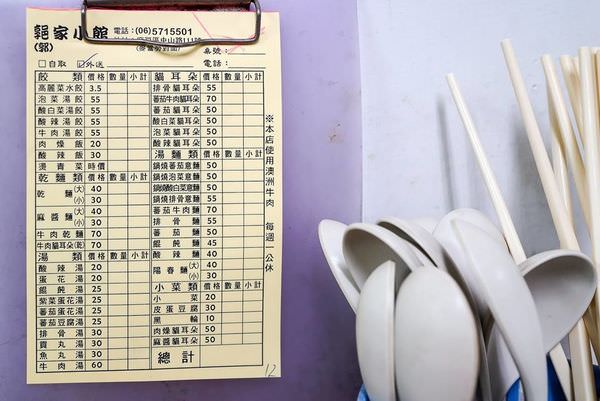 郢家小館 電話：(06)5715501
(郭)
桌號：
□自取 ☑外送 電話：
餃類 價格 數量 小計
高麗菜水餃 3.5
泡菜湯餃 55
酸白菜湯餃 55
酸辣湯餃 55
牛肉湯餃 55
肉燥飯 20
酸辣飯 30
燙青菜 時價
乾麵類 價格 數量 小計
乾麵 (大) 40
(小) 30
麻醬麵 (大) 40
(小) 30
牛肉乾麵 70
牛肉貓耳朵(乾) 70
湯類 價格 數量 小計
酸辣湯 20
蛋花湯 20
餛飩湯 25
紫菜蛋花湯 25
蕃茄蛋花湯 25
蕃茄豆腐湯 25
排骨湯 30
貢丸湯 30
魚丸湯 30
牛肉湯 60
貓耳朵 價格 數量 小計
排骨貓耳朵 55
蕃茄牛肉貓耳朵 70
蕃茄貓耳朵 50
酸白菜貓耳朵 50
泡菜貓耳朵 50
酸辣貓耳朵 50
湯麵類 價格 數量 小計
鍋燒蕃茄意麵 50
鍋燒泡菜意麵 50
鍋燒酸白菜意麵 50
鍋燒排骨意麵 55
蕃茄牛肉麵 70
排骨麵 55
蕃茄麵 50
餛飩麵 45
酸辣麵 40
陽春麵 (大) 40
(小) 30
小菜類 價格 數量 小計
小菜 20
皮蛋豆腐 30
黑輪 10
肉燥貓耳朵 50
麻醬貓耳朵 50
總計
※本店使用澳洲牛肉 每週一公休
12